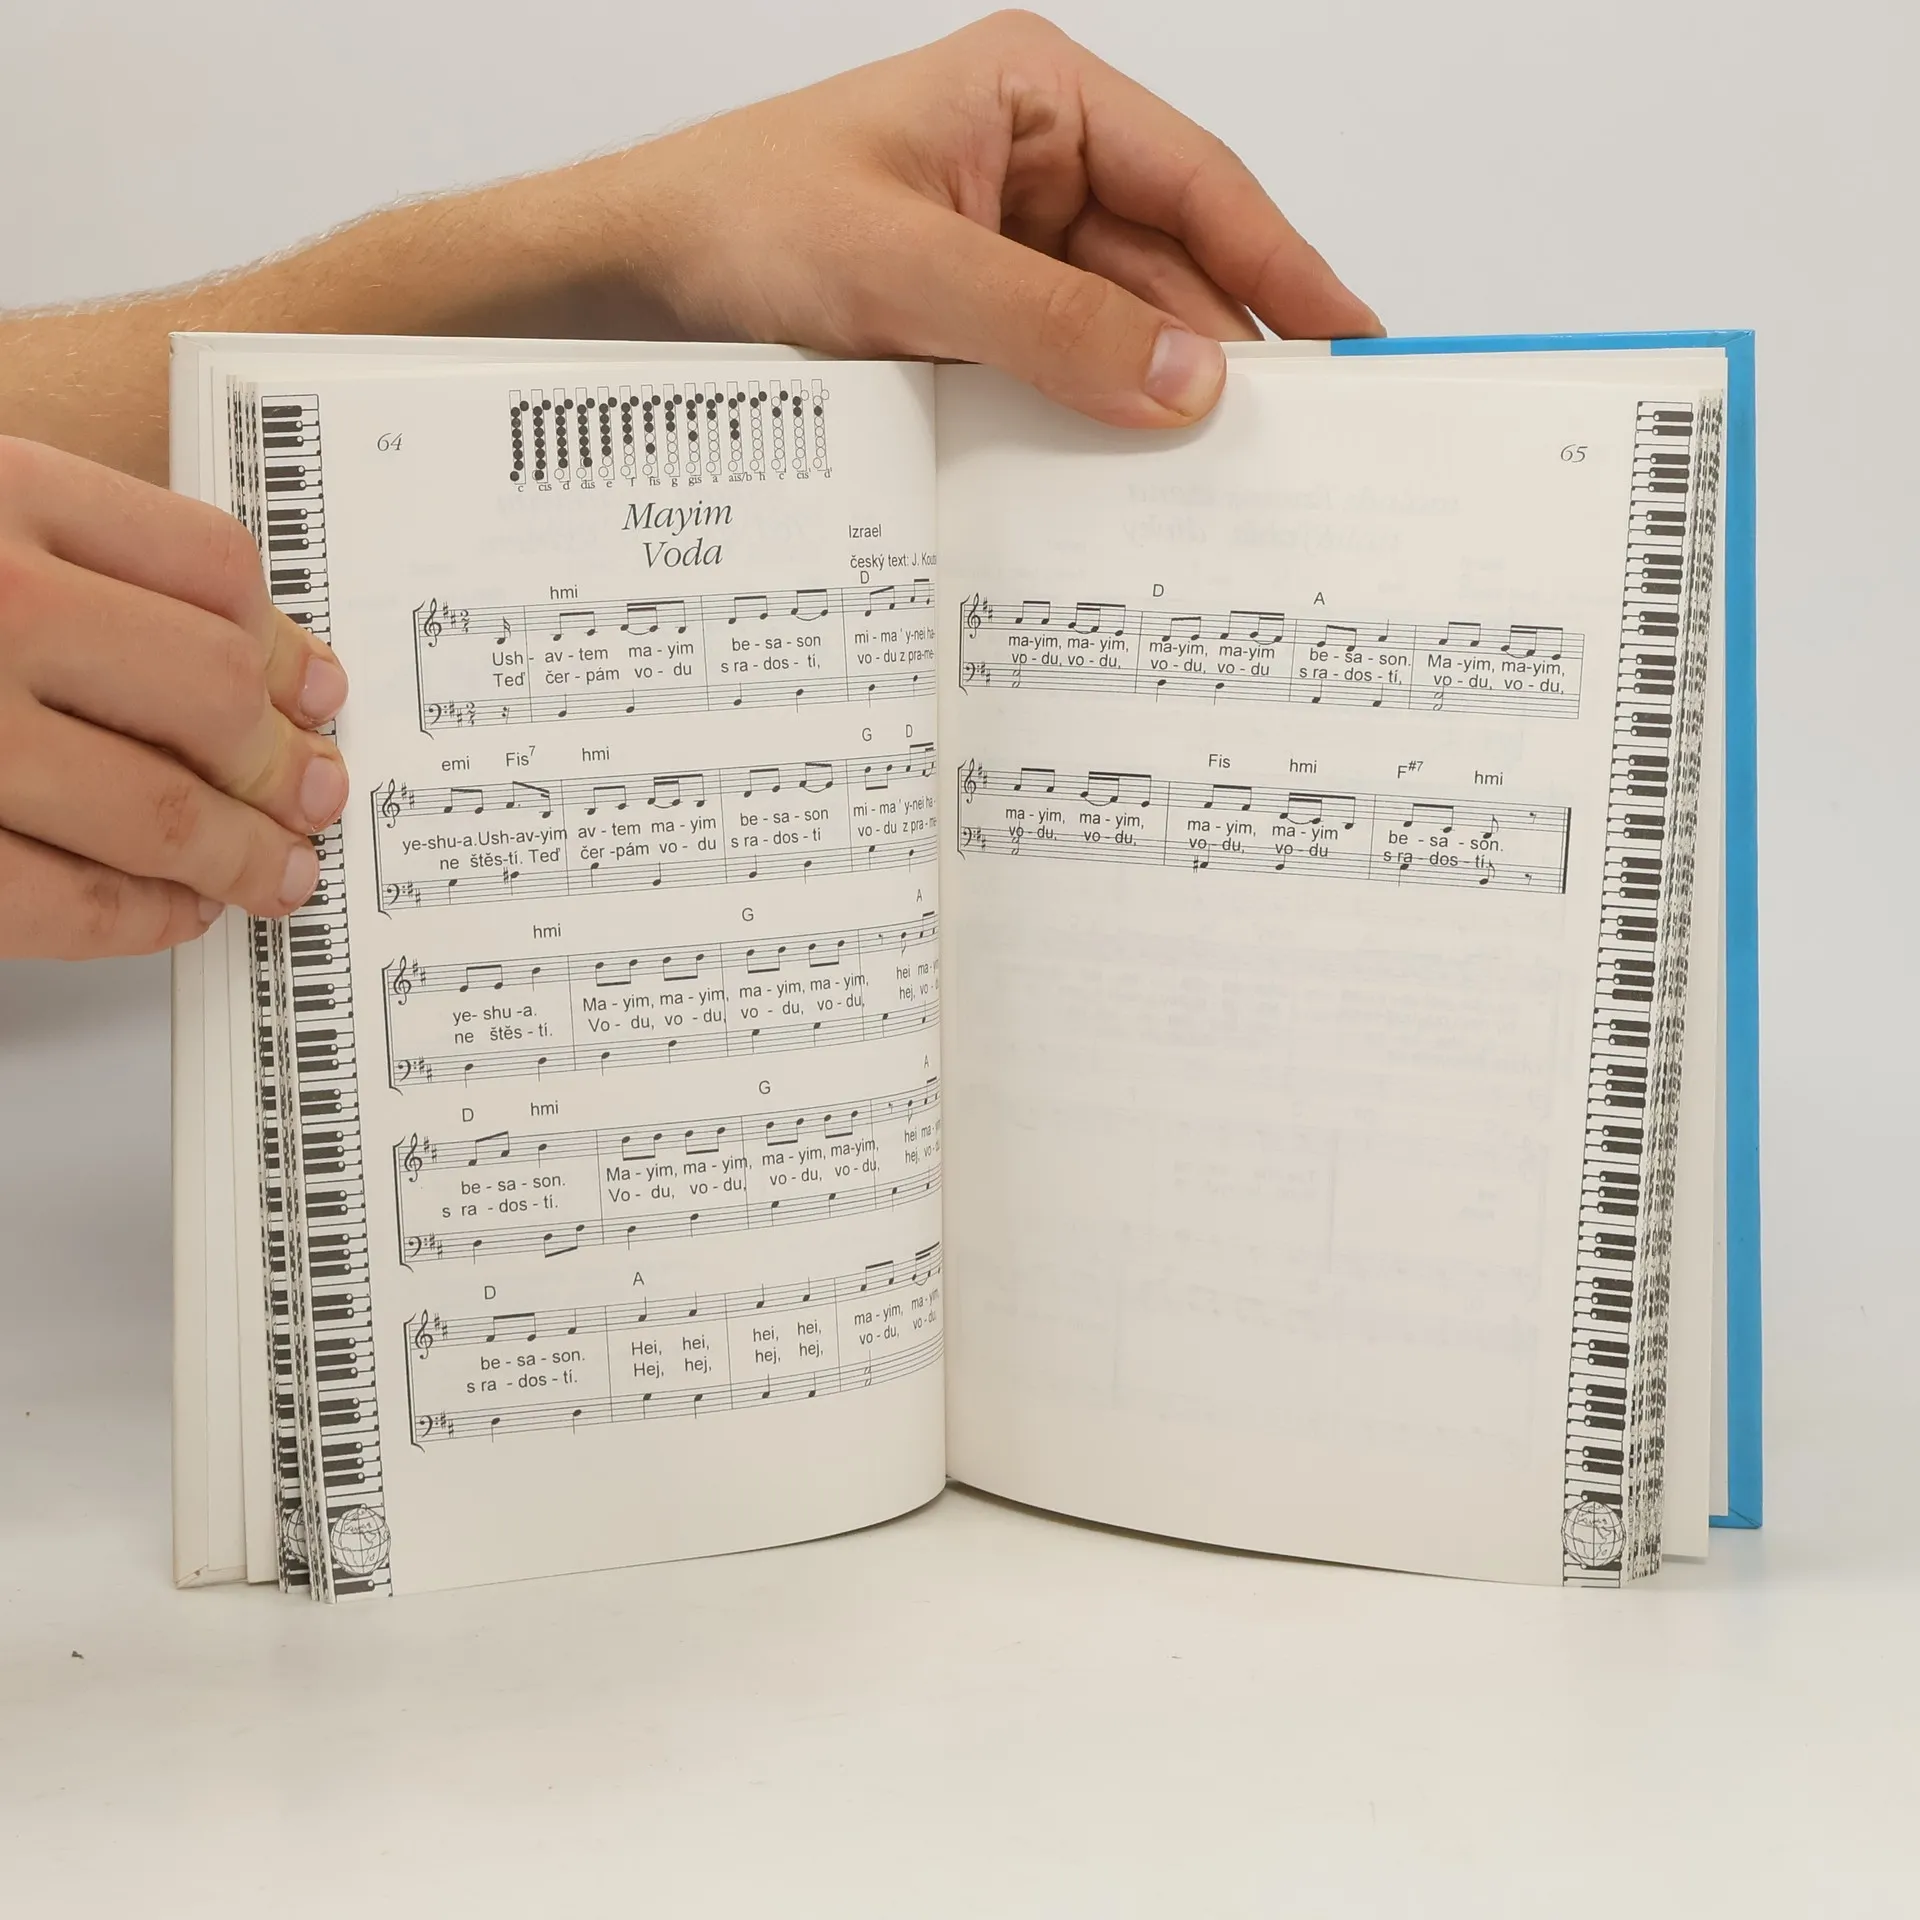 64
c cis d dis e f fis g gis a ais/b h c' cis' d'
Mayim
Voda
Izrael
český text: J.
hmi D
Ush - av - tem ma - yim be - sa - son mi - ma' y-nei ha-
Teď čer - pám vo - du s ra - dos - tí, vo - du z pra-me-
emi Fis7 hmi G D
ye-shu-a. Ush-av-yim av - tem ma - yim be - sa - son mi - ma' y-nei ha-
ne štěs-tí. Teď čer -pám vo - du s ra - dos - tí vo - du z pra-me-
hmi G A
ye- shu -a. Ma - yim, ma - yim, ma - yim, ma - yim, hei ma-yim
ne štěs - tí. Vo - du, vo - du, vo - du, vo - du, hej, vo-
D hmi G A
be - sa - son. Ma - yim, ma - yim, ma - yim, ma-yim, hei ma-
s ra - dos - tí. Vo - du, vo - du, vo - du, vo - du, hej, vo-
D A
be - sa - son. Hei, hei, hei, hei, ma - yim, ma - yim,
s ra - dos - tí. Hej, hej, hej, hej, vo - du, vo - du,
65
D A
ma-yim, ma- yim, ma-yim, ma-yim be - sa - son. Ma -yim, ma-yim,
vo - du, vo - du, vo - du, vo - du s ra - dos - tí, vo - du, vo - du,
Fis hmi F#7 hmi
ma - yim, ma - yim, ma - yim, ma - yim be - sa - son.
vo - du, vo - du, vo - du, vo - du s ra - dos - tí,